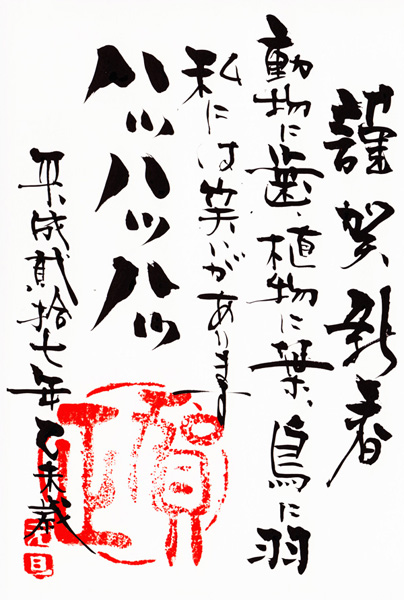 謹賀新春
動物に歯、植物に葉、鳥に羽
私には笑いがあります
ハッハッハッ
平成貳拾七年乙未歳
元旦
賀正